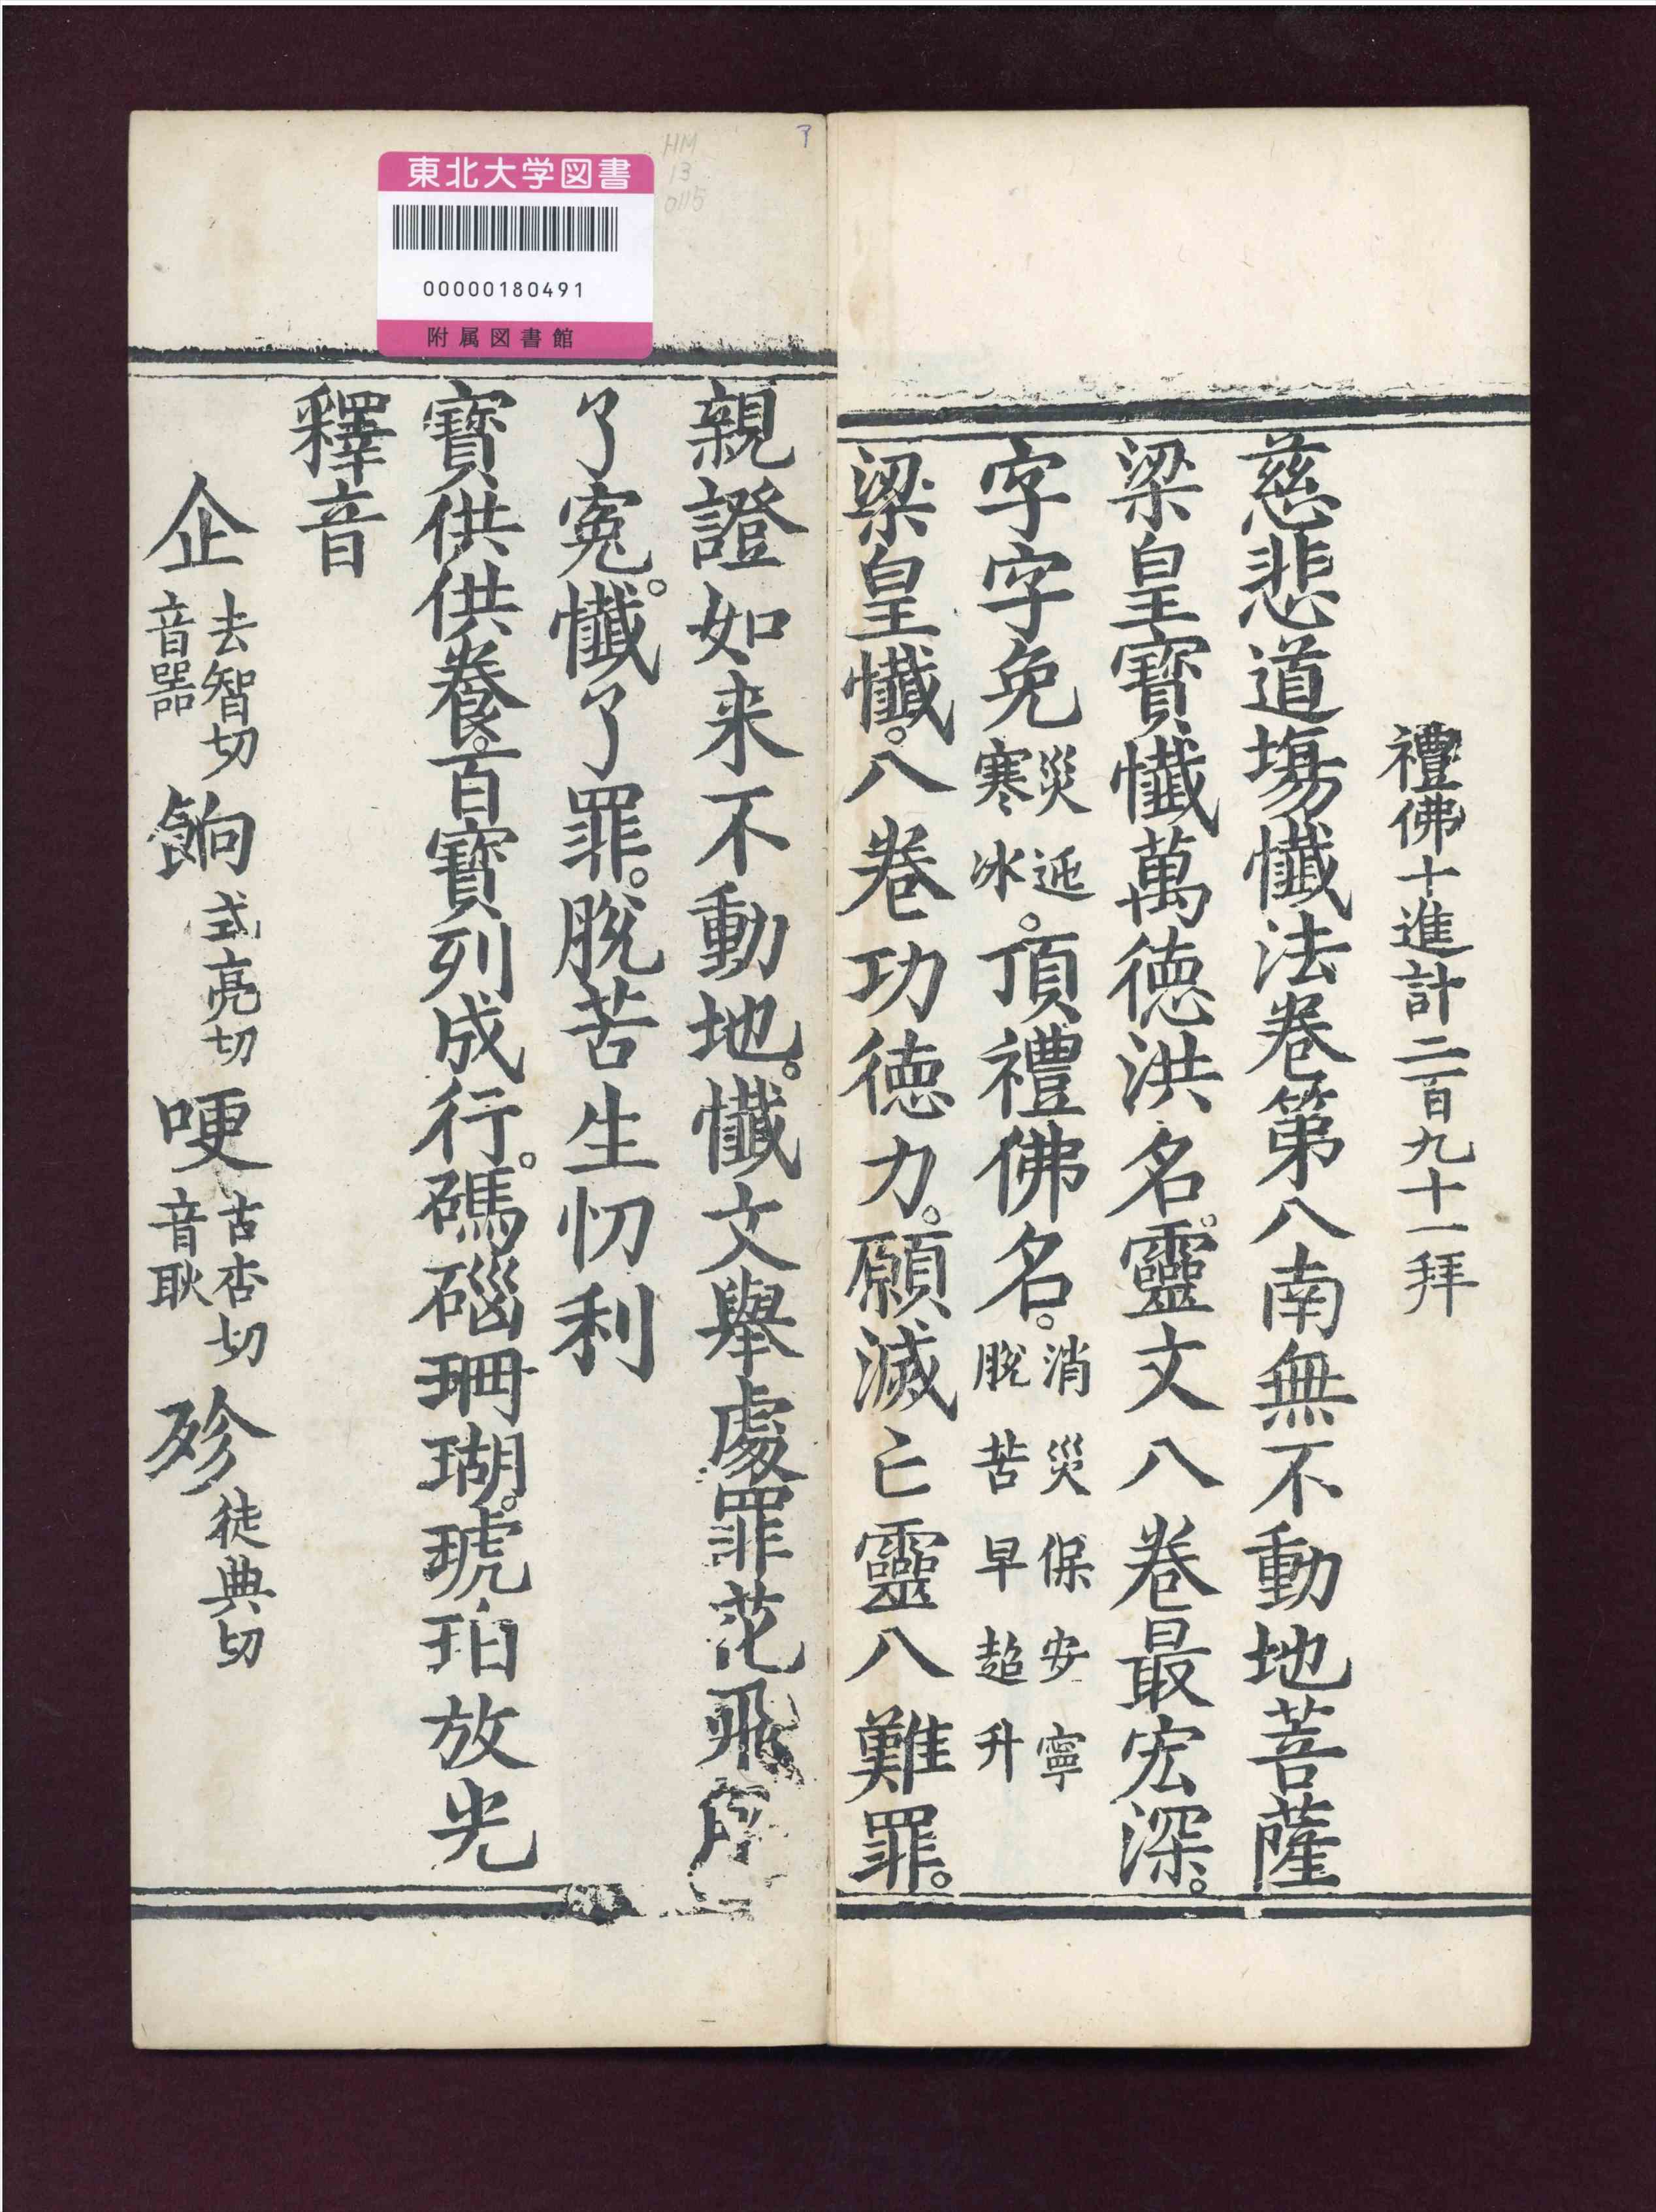 東北大学図書
00000180491
附属図書館
HM
13
0115
禮佛十進計二百九十一拜
慈悲道場懺法卷第八南無不動地菩薩
梁皇寶懺萬德洪名。靈文八卷最宏深。
字字免災延寒冰。頂禮佛名。消災保安寧脫苦早超升
梁皇懺。八卷功德力。願滅亡靈八難罪。
親證如来不動地。懺文舉處罪花飛
了寃。懺了罪。脫苦生忉利
寶供供養。百寶列成行。碼碯珊瑚。琥珀放光
釋音
企去智切音器餉式亮切哽古杏切音耿殄徒典切